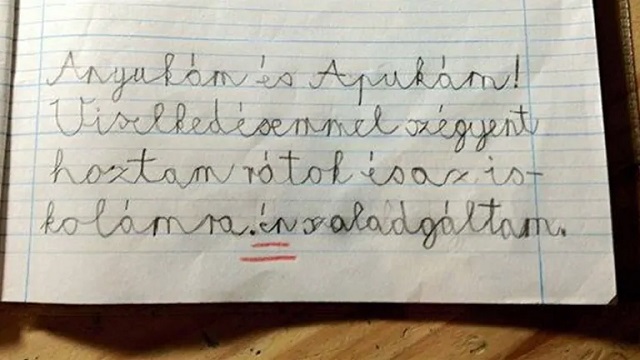 Anyukám és Apukám!
Viselkedésemmel szégyent
hoztam rátok és az is-
kolámra. én szaladgáltam.